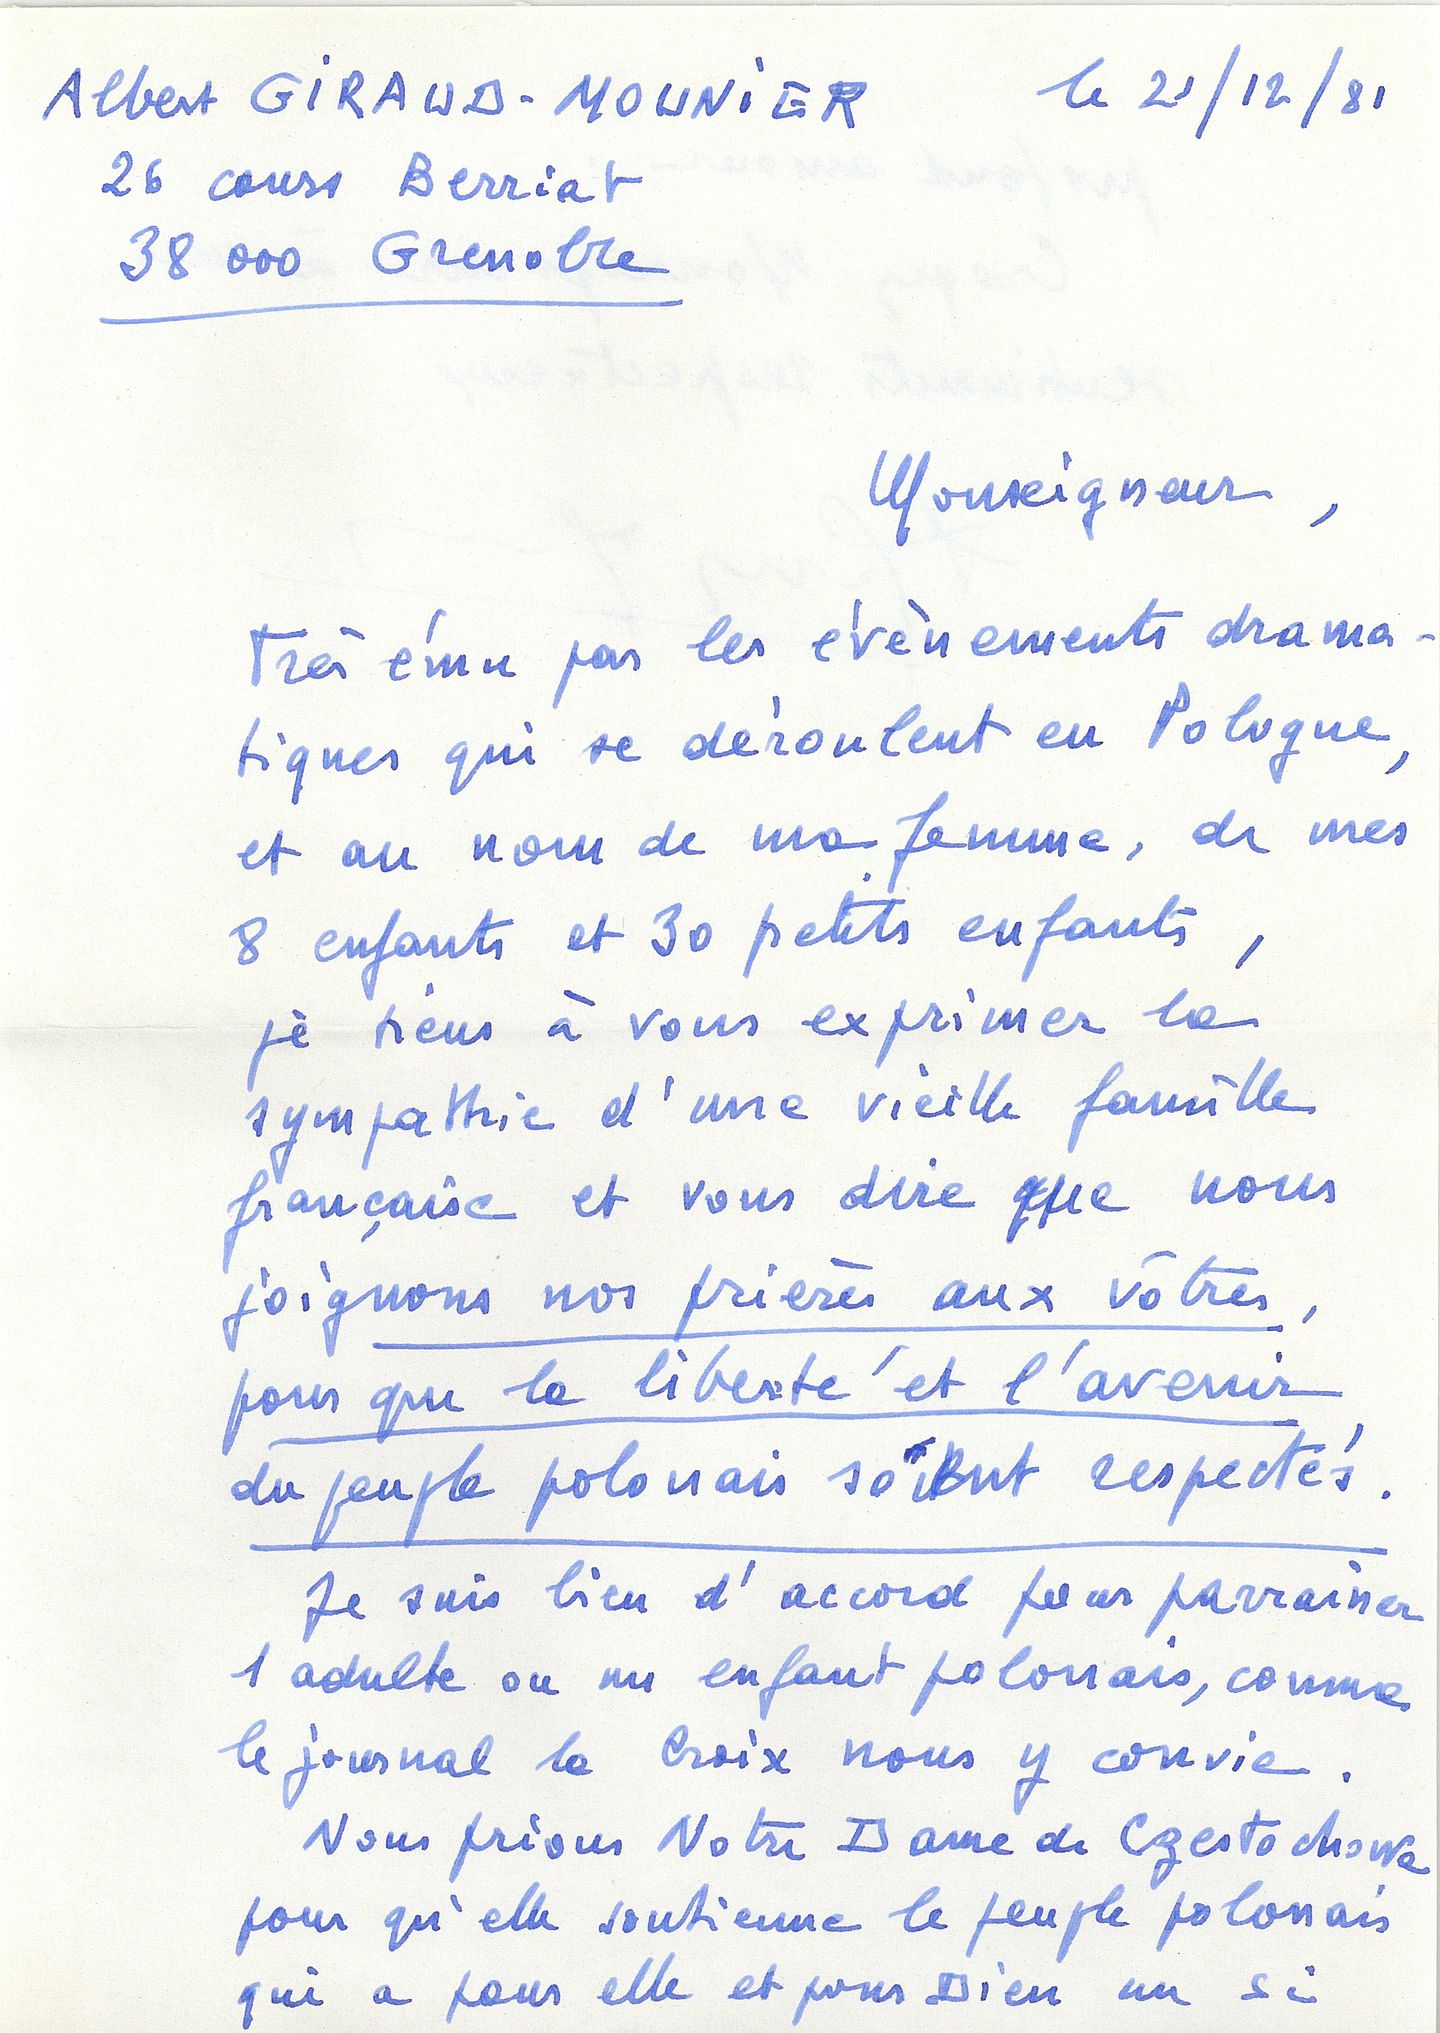 Albert GIRAUD-MOUNIER le 21/12/81
26 cours Berriat
38 000 Grenoble
Monseigneur,
Très ému par les évènements drama-
tiques qui se déroulent en Pologne,
et au nom de ma femme, de mes
8 enfants et 30 petits enfants,
je tiens à vous exprimer la
sympathie d'une vieille famille
française et vous dire que nous
joignons nos prières aux vôtres,
pour que la liberté et l'avenir
du peuple polonais soient respectés.
Je suis bien d'accord pour parrainer
1 adulte ou un enfant polonais, comme
le journal la Croix nous y convie.
Nous prions Notre Dame de Czestochowa
pour qu'elle soutienne le peuple polonais
qui a pour elle et pour Dieu un si